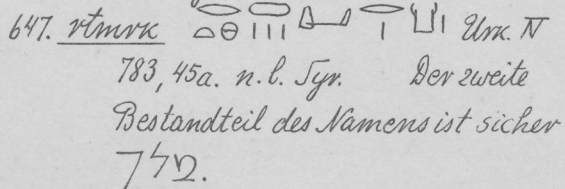 647. rtmrk Urk. IV
783, 45a. n. l. Syr. Der zweite
Bestandteil des Namens ist sicher
מלך.